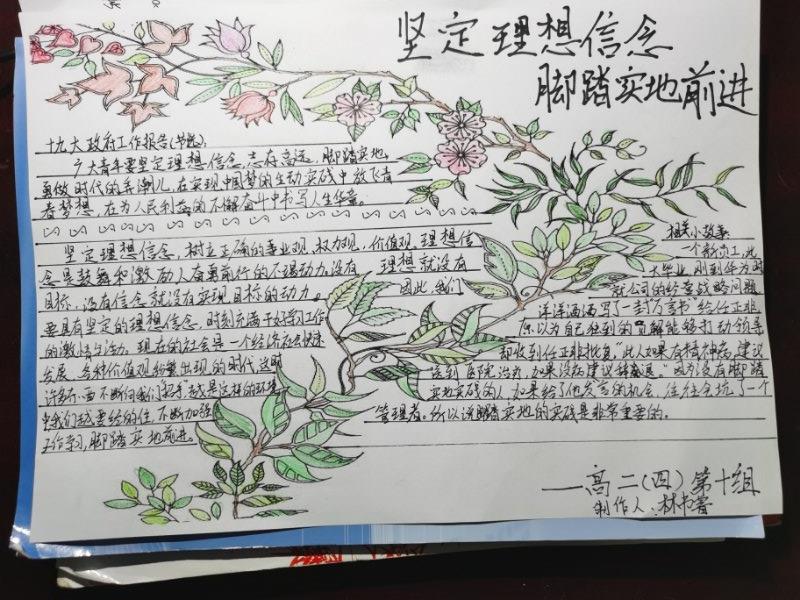 坚定理想信念
脚踏实地前进
十九大政府工作报告(节选):
广大青年要坚定理想信念,志存高远,脚踏实地,
勇做时代的弄潮儿,在实现中国梦的生动实践中放飞青
春梦想,在为人民利益的不懈奋斗中书写人生华章。
坚定理想信念,树立正确的事业观、权力观,价值观。理想信
念是鼓舞和激励人奋勇前行的不竭动力。没有 理想就没有
目标,没有信念就没有实现目标的动力。 因此,我们
要具有坚定的理想信念,时刻充满干好学习工作
的激情与活力。现在的社会是一个经济社会快速
发展、各种价值观纷繁出现的时代,这时
许多东西不断向我们"招手"越是这样的环境
我们越要经的住,不断加强
工作学习,脚踏实地前进。
相关小故事
一个新员工,北
大毕业,刚到华为时
就公司的经营战略问题
洋洋洒洒写了一封"万言书"给任正非
原以为自己独到的见解能够打动领导
却收到任正非批复:"此人如果有精神病,建议
送到医院治疗,如果没病建议辞退。"因为没有脚踏
实地实践的人,如果给了他发言的机会,往往会坑了一个
管理者。所以说脚踏实地的实践是非常重要的。
——高二(四)第十组
制作人:林书